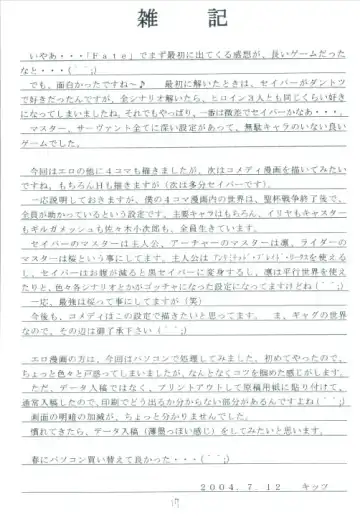 雑記
いやあ・・・「Fate」でまず最初に出てくる感想が、長いゲームだった
なと・・・(´¨;)
でも、面白かったですね~♪　最初に解いたときは、セイバーがダントツ
で好きだったんですが、全シナリオ解いたら、ヒロイン3人とも同じくらい好き
になってしまいましたね。それでもやっぱり、一番は微差でセイバーかなあ・・・。
マスター、サーヴァント全てに深い設定があって、無駄キャラのいない良い
ゲームでした。
今回はエロの他に4コマも描きましたが、次はコメディ漫画を描いてみたい
ですね。もちろんHも描きますが（次は多分セイバーです）。
一応説明しておきますが、僕の4コマ漫画内の世界は、聖杯戦争終了後で、
全員が助かっているという設定です。主要キャラはもちろん、イリヤもキャスター
もギルガメッシュも佐々木小次郎も、全員生きています。
セイバーのマスターは主人公、アーチャーのマスターは凛、ライダーの
マスターは桜という事にしてます。主人公はアンリミテッド・ブレイド・ワークスを使える
し、セイバーはお腹が減ると黒セイバーに変身するし、凛は平行世界を使え
たりと、色々各シナリオとかがゴッチャになった設定になってますけどね(´¨;)
一応、最後は桜って事にしてますが（笑）
今後も、コメディはこの設定で描きたいと思ってます。　ま、ギャグの世界
なので、その辺は御了承下さい(´¨;)
エロ漫画の方は、今回はパソコンで処理してみました。初めてやったので、
ちょっと色々と戸惑ってしまいましたが、なんとなくコツを掴めた感じがします。
ただ、データ入稿ではなく、プリントアウトして原稿用紙に貼り付けて、
通常入稿したので、印刷でどう出るか分からない部分があるんですよね(´¨;)
画面の明暗の加減が、ちょっと分かりませんでした。
慣れてきたら、データ入稿（薄墨っぽい感じ）をしてみたいと思います。
春にパソコン買い替えて良かった・・・(´¨;)
2004.7.12　キッツ
17